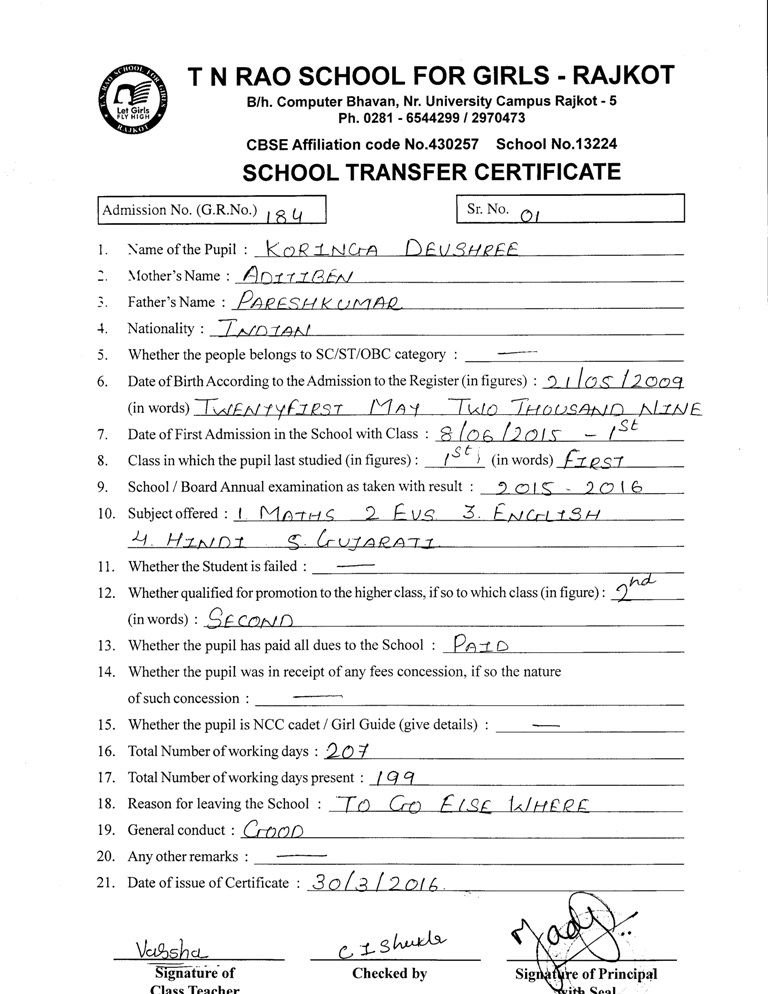 T. N. RAO SCHOOL FOR GIRLS
Let Girls
FLY HIGH
RAJKOT
T N RAO SCHOOL FOR GIRLS - RAJKOT
B/h. Computer Bhavan, Nr. University Campus Rajkot - 5
Ph. 0281 - 6544299 / 2970473
CBSE Affiliation code No.430257 School No.13224
SCHOOL TRANSFER CERTIFICATE
Admission No. (G.R.No.) 184 Sr. No. 01
1. Name of the Pupil : KORINGA DEVSHREE
2. Mother's Name : ADITIBEN
3. Father's Name : PARESHKUMAR
4. Nationality : INDIAN
5. Whether the people belongs to SC/ST/OBC category : —
6. Date of Birth According to the Admission to the Register (in figures) : 21/05/2009
(in words) TWENTYFIRST MAY TWO THOUSAND NINE
7. Date of First Admission in the School with Class : 8/06/2015 - 1st
8. Class in which the pupil last studied (in figures) : 1st (in words) FIRST
9. School / Board Annual examination as taken with result : 2015 - 2016
10. Subject offered : 1. MATHS 2 EVS 3. ENGLISH
4. HINDI 5. GUJARATI
11. Whether the Student is failed : —
12. Whether qualified for promotion to the higher class, if so to which class (in figure) : 2nd
(in words) : SECOND
13. Whether the pupil has paid all dues to the School : PAID
14. Whether the pupil was in receipt of any fees concession, if so the nature
of such concession : —
15. Whether the pupil is NCC cadet / Girl Guide (give details) : —
16. Total Number of working days : 207
17. Total Number of working days present : 199
18. Reason for leaving the School : TO GO ELSE WHERE
19. General conduct : GOOD
20. Any other remarks : —
21. Date of issue of Certificate : 30/3/2016.
Varsha C I Shukla
Signature of Checked by Signature of Principal
Class Teacher with Seal